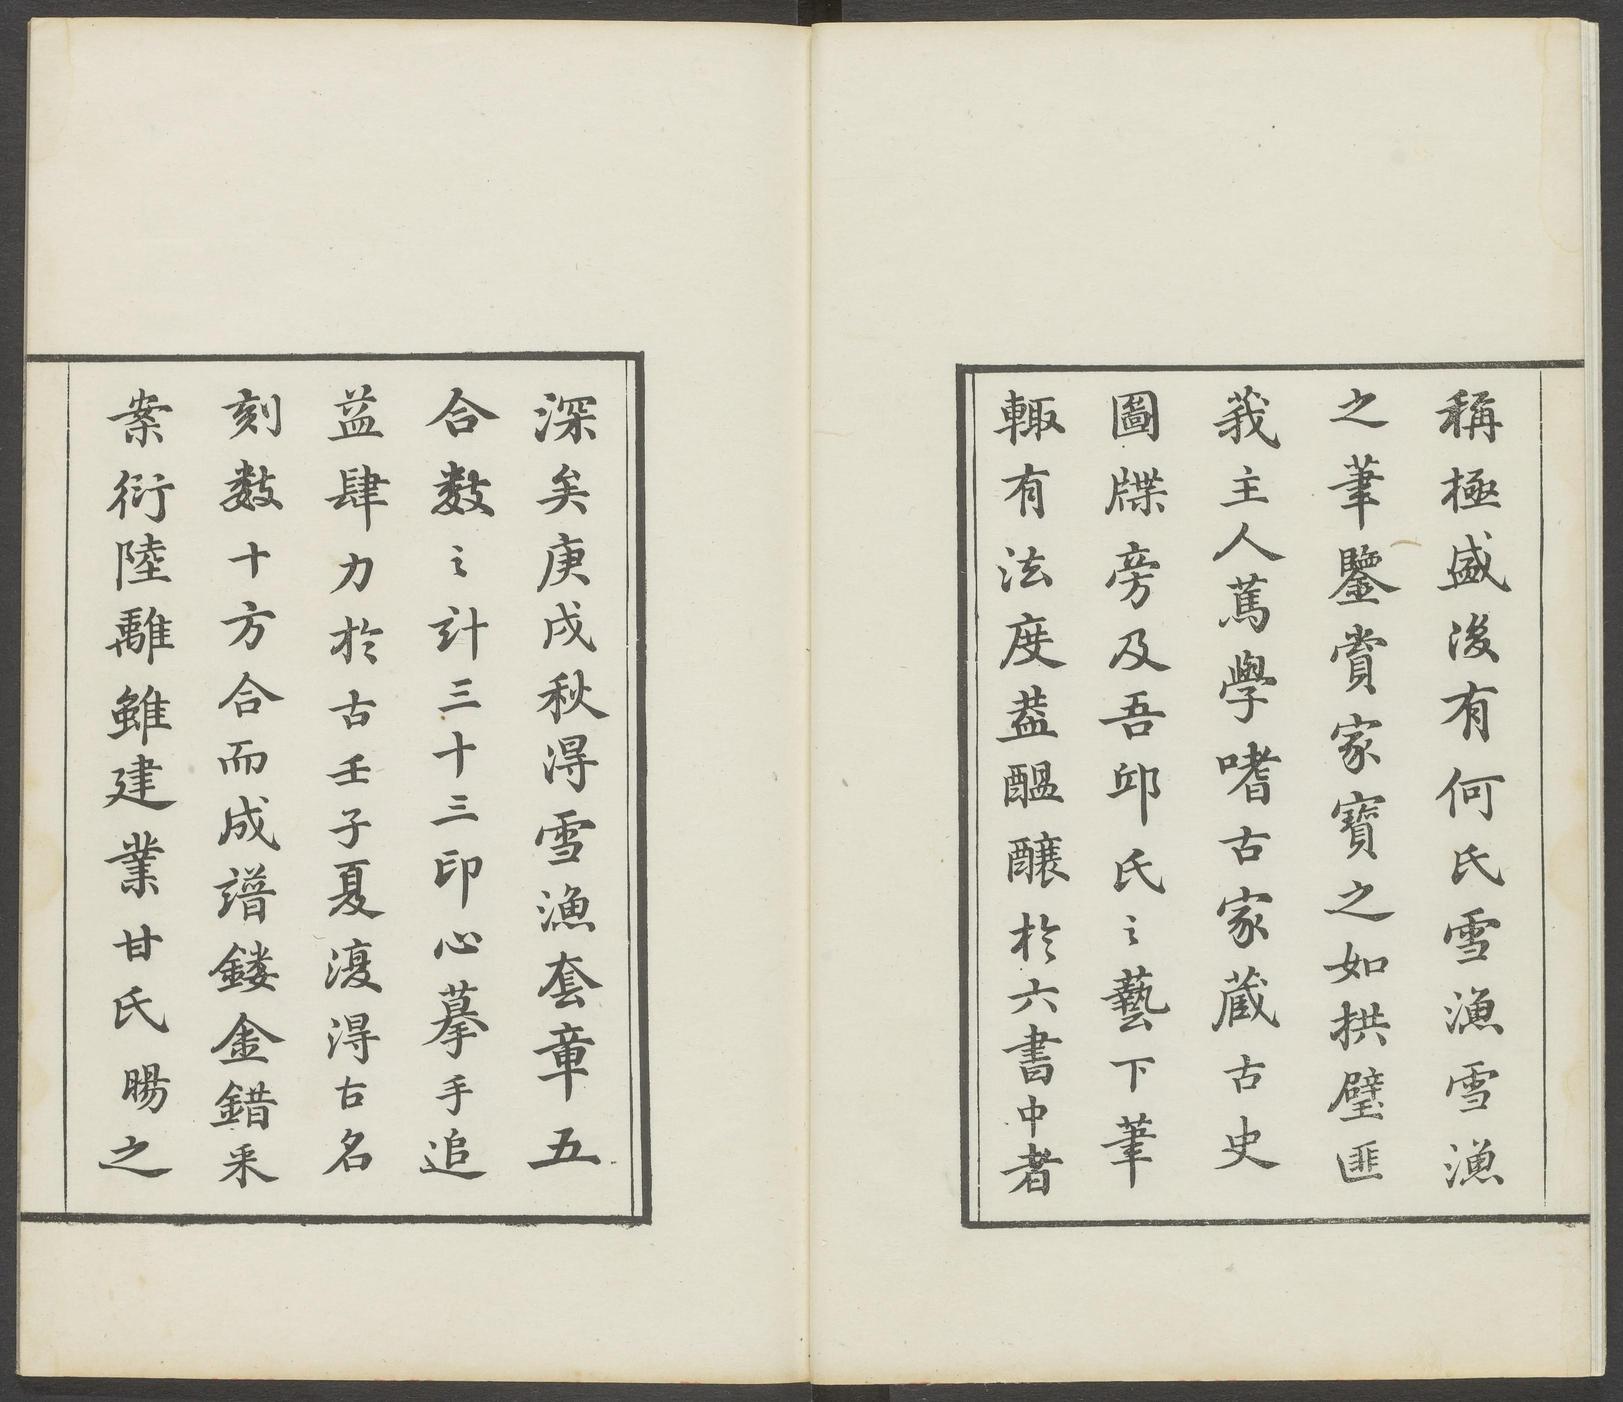 稱極盛後有何氏雪漁雪漁
之筆鑒賞家寶之如拱璧匪
我主人篤學嗜古家藏古史
圖牒旁及吾邱氏之藝下筆
輙有法度葢醞釀於六書中者
深矣庚戌秋得雪漁套章五
合數之計三十三印心摹手追
益肆力於古壬子夏復得古名
刻數十方合而成譜鏤金錯采
案衍陸離雖建業甘氏暘之